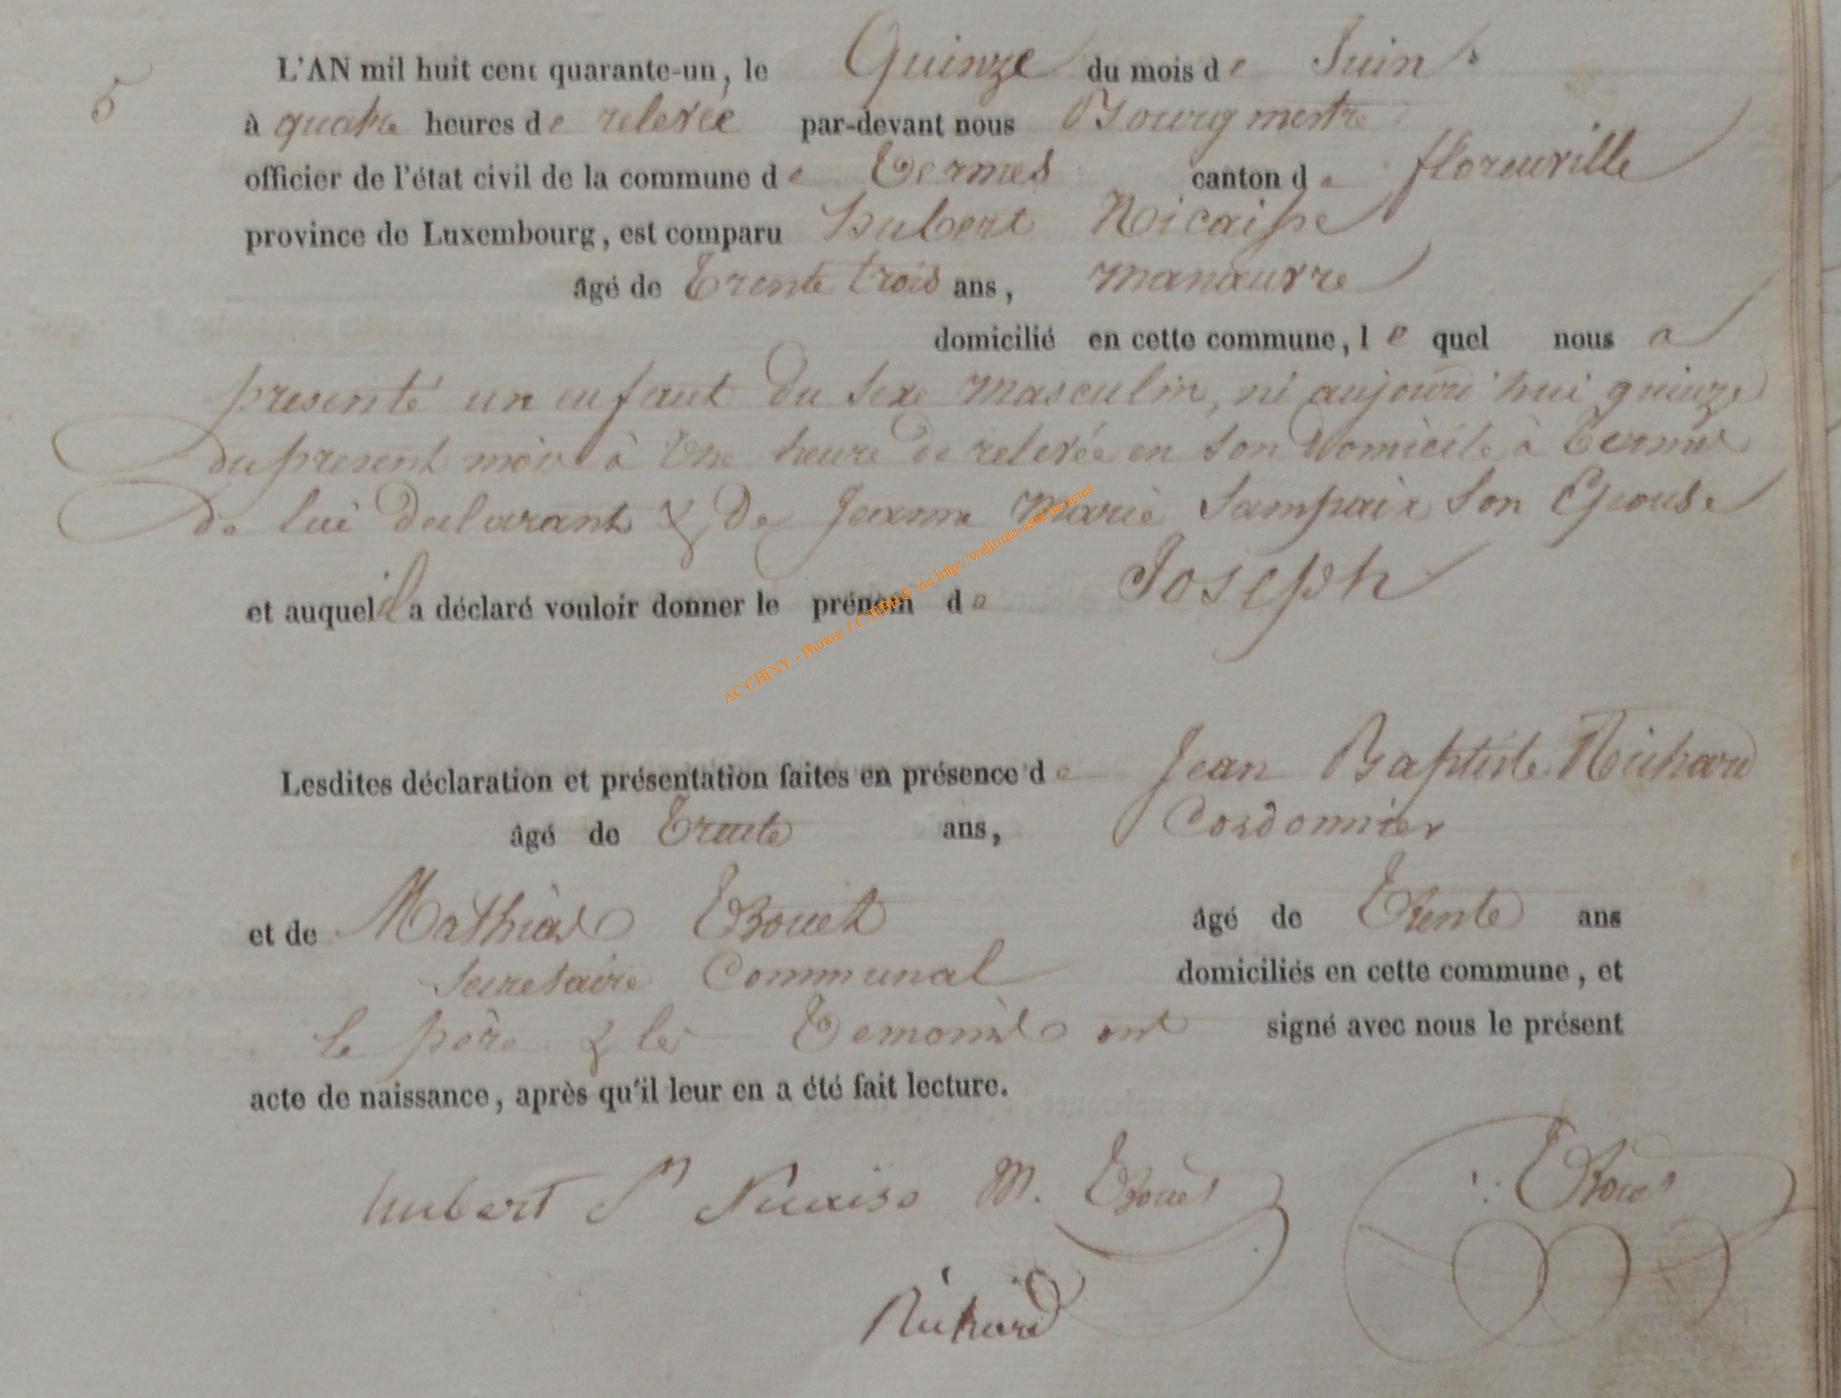 5
L'AN mil huit cent quarante-un, le Quinze du mois de Juin
à quatre heures de relevée par-devant nous Bourgmestre
officier de l'état civil de la commune de Termes canton de florenville
province de Luxembourg, est comparu hubert Nicaisse
âgé de Trente trois ans, manœuvre
domicilié en cette commune, lequel nous a
presenté un enfant du sexe masculin, né aujourd'hui quinze
du present mois à une heure de relevée en son domicile à Termes
de lui declarant & de Jeanne Marie Sampaix son Epouse
et auquel il a déclaré vouloir donner le prénom de Joseph
AC CHINY - Photos: J.C. via http://wallonia-asbl.be/actes
Lesdites déclaration et présentation faites en présence de Jean Baptiste Richard
âgé de Trente ans, Cordonnier
et de Mathias âgé de Trente ans
secretaire Communal domiciliés en cette commune, et
le père & les Temoins ont signé avec nous le présent
acte de naissance, après qu'il leur en a été fait lecture.
hubert Nicaise M.
Richard